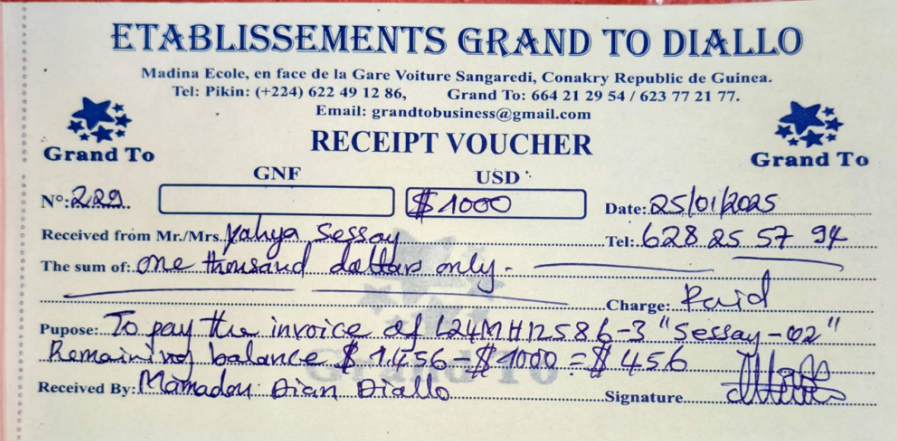 ETABLISSEMENTS GRAND TO DIALLO
Madina Ecole, en face de la Gare Voiture Sangaredi, Conakry Republic de Guinea.
Tel: Pikin: (+224) 622 49 12 86, Grand To: 664 21 29 54 / 623 77 21 77.
Email: grandtobusiness@gmail.com
Grand To RECEIPT VOUCHER Grand To
GNF USD
N°: 229 $1000 Date: 25/01/2025
Received from Mr./Mrs. Yahya Sessay Tel: 628 25 57 94
The sum of: one thousand dollars only.
Charge: Paid
Pupose: To pay the invoice of L24MH12586-3 "Sessay-02"
Remaining balance $1.456-$1000=$456
Grand To
Received By: Mamadou Dian Diallo Signature